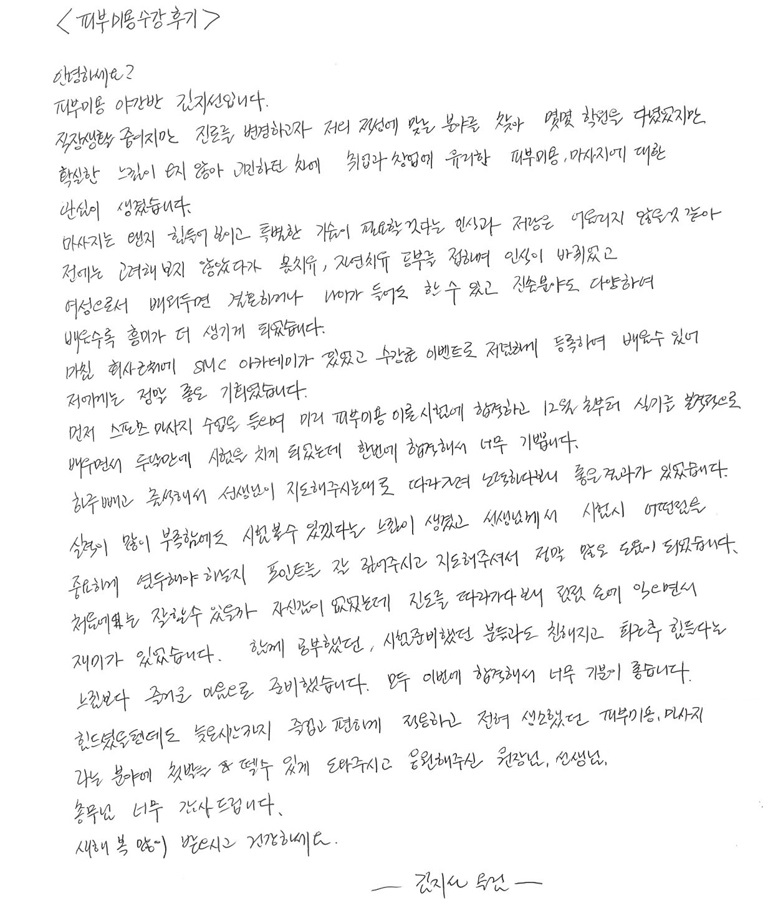 <피부미용수강후기>
안녕하세요?
피부미용 야간반 김지선입니다.
직장생활 중이지만 진로를 변경하고자 저의 적성에 맞는 분야를 찾아 몇몇 학원을 다녔었지만
확실한 느낌이 오지 않아 고민하던 차에 취업과 창업에 유리한 피부미용, 마사지에 대한
관심이 생겼습니다.
마사지는 왠지 힘들어보이고 특별한 기술이 필요할것다는 인식과 저랑은 어울리지 않을것 같아
전에는 고려해보지 않았다가 몸치유, 자연치유 공부를 접하며 인식이 바뀌었고
여성으로서 배워두면 결혼하거나 나이가 들어도 할 수 있고 진출분야도 다양하여
배울수록 흥미가 더 생기게 되었습니다.
마침 회사근처에 SMC 아카데미가 있었고 수강료 이벤트로 저렴하게 등록하여 배울수 있어
저에게는 정말 좋은 기회였습니다.
먼저 스포츠 마사지 수업을 들으며 미리 피부미용 이론시험에 합격하고 12월 초부터 실기를 본격적으로
배우면서 두달만에 시험을 치게 되었는데 한번에 합격해서 너무 기쁩니다.
하루 빼고 출석해서 선생님이 지도해주시는대로 따라가려 노력하다보니 좋은결과가 있었습니다.
실력이 많이 부족함에도 시험볼수 있겠다는 느낌이 생겼고 선생님께서 시험시 어떤점을
중요하게 염두해야 하는지 포인트를 잘 짚어주시고 지도해주셔서 정말 많은 도움이 되었습니다.
처음에는 잘할수 있을까 자신감이 없었는데 진도를 따라가다보니 점점 손에 익으면서
재미가 있었습니다. 함께 공부했던, 시험준비했던 분들과도 친해지고 퇴근후 힘들다는
느낌보다 즐거운 마음으로 준비했습니다. 모두 이번에 합격해서 너무 기분이 좋습니다.
힘드셨을텐데도 늦은시간까지 즐겁고 편하게 적응하고 전혀 생소했던 피부미용, 마사지
라는 분야에 첫발을 뗄수 있게 도와주시고 응원해주신 원장님, 선생님,
총무님 너무 감사드립니다.
새해 복 많이 받으시고 건강하세요.
— 김지선 올림 —